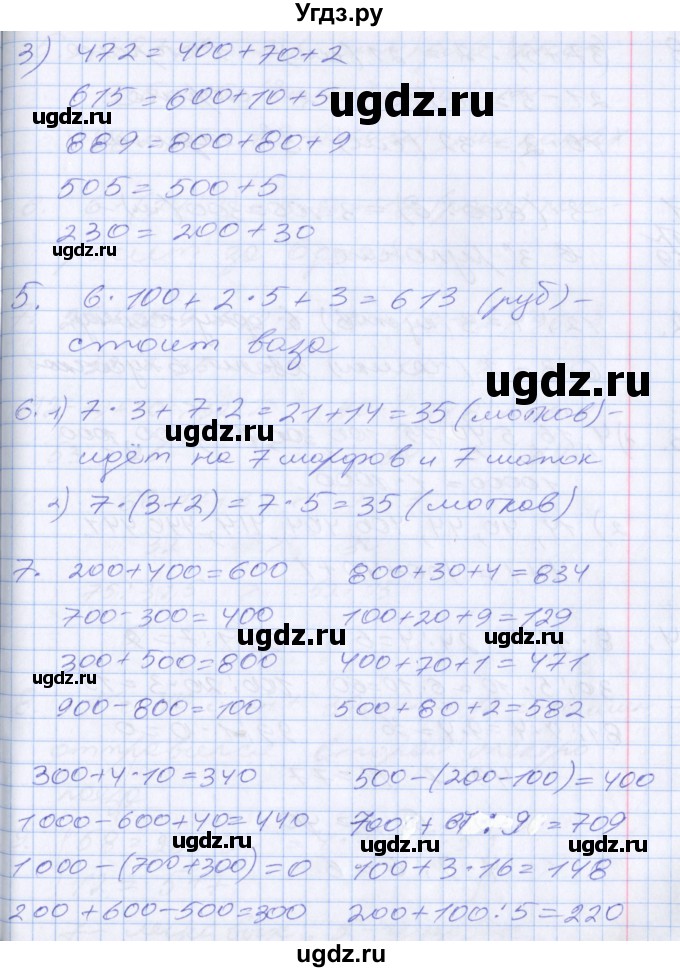 Угдз.ру
3) 472 = 400 + 70 + 2
615 = 600 + 10 + 5
ugdz.ru
ugdz.ru
889 = 800 + 80 + 9
505 = 500 + 5
230 = 200 + 30
ugdz.ru
5. 6 · 100 + 2 · 5 + 3 = 613 (руб) –
стоит ваза
ugdz.ru
6. 1) 7 · 3 + 7 · 2 = 21 + 14 = 35 (мотков) –
ugdz.ru
идёт на 7 шарфов и 7 шапок
2) 7 · (3 + 2) = 7 · 5 = 35 (мотков)
7. 200 + 400 = 600 800 + 30 + 4 = 834
700 – 300 = 400 100 + 20 + 9 = 129
ugdz.ru
ugdz.ru
300 + 500 = 800 400 + 70 + 1 = 471
ugdz.ru
900 – 800 = 100 500 + 80 + 2 = 582
300 + 4 · 10 = 340 500 – (200 – 100) = 400
1000 – 600 + 40 = 440 700 + : 9 = 709
ugdz.ru
ugdz.ru
1000 – (700 + 300) = 0 100 + 3 · 16 = 148
200 + 600 – 500 = 300 200 + 100 : 5 = 220
ugdz.ru